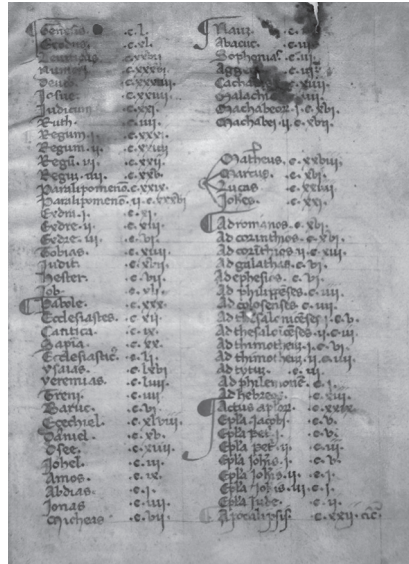 Genesis. .c.l.
Exodus. .c.xl.
Leuiticus .c.xxvii
Numeri .c.xxxvi
.c.xxxiiii.
Iosue. .c.xxiiii.
Iudicum .c.xxi.
Ruth .c.iiii.
Regum.i. .c.xxxi.
Regum.ii. .c.xxiiii
.c.xxii.
.c.xxv.
Paralipomenō.c.xxix.
Paralipomenō.ii.c.xxxvi
Esdre.i. .c.x.
Esdre.ii. .c.xiii.
Esdre.iii. .c.
Tobias. .c.xiiii.
Iudit. .c.xvi.
Hester. .c.
Iob. .c.
.c.xxx.
Ecclesiastes .c.xii.
Cātica. .c.
Sapia .c.
Ecclesiastic⁹ .c.li.
Ysaias. .c.lxvi
yeremias. .c.lii.
Treni .c.
Baruc. .c.vi.
Ezechiel .c.xlviii.
Daniel. .c.
Osee. .c.xiiii.
Iohel. .c.iii.
Amos. .c.ix.
Abdias. .c.i.
Ionas .c.iiii.
Micheas .c.vii
Naū. .c.iii.
Abacuc .c.iii
Sophonias. .c.iii.
Aggeus .c.ii.
.c.xiiii
Malachias
Machabeor̄.i.c.xvi.
Machabei.ii.c.xv.
Matheus.c.xxviii.
Marcus.c.xvi.
Lucas .c.xxiiii
Iohes .c.xxi.
Ad romanos.c.xvi.
Ad corinthios.c.xvi.
Ad corīthios.ii.c.xiii.
Ad galathas.c.vi.
Ad ephesios.c.vi.
Ad philippēses.c.iiii.
Ad colosenses.c.iiii.
Ad thesalonicēses.i.c.v.
Ad thesalōicēses.ii.c.iii.
Ad thimotheū.i.c.vi.
Ad thimotheū.ii.c.iiii.
Ad tytū .c.iii.
Ad philemonē.c.i.
Ad hebreos .c.xiii.
Actus aplor̄ .c.
Epl̄a Iacobi .c.v.
Epl̄a Pet̄.i. .c.v.
Epl̄a Pet̄.ii .c.iii.
Epl̄a Ioh̄is.i. .c.v.
Epl̄a Ioh̄is.ii .c.i.
Epl̄a Ioh̄is.iii.c.i.
Epl̄a Iude .c.
Apocalipsis. .c.xxii.